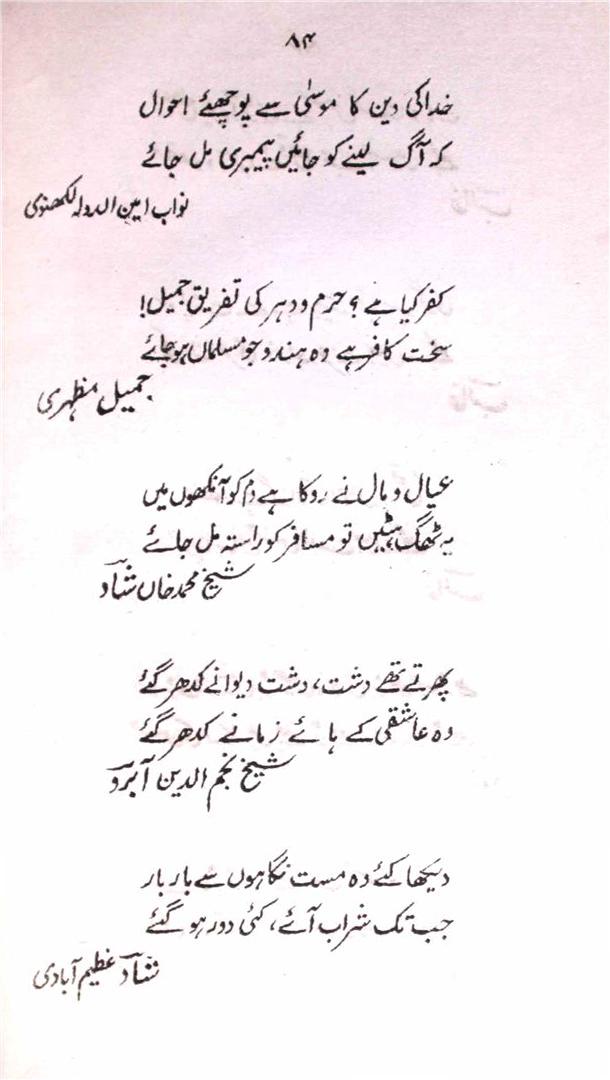 ۸۴
خدا کی دین کا موسیٰ سے پوچھئے احوال
کہ آگ لینے کو جائیں پیمبری مل جائے
نواب امین الدولہ لکھنوی
کفر کیا ہے؟ حرم و دہر کی تفریق جمیل!
سخت کافر ہے وہ ہندو جو مسلماں ہوجائے
جمیل مظہری
عیال و مال نے روکا ہے دم کو آنکھوں میں
یہ ٹھاگ ہٹیں تو مسافر کو راستہ مل جائے
شیخ محمد خاں شاد
پھرتے تھے دشت، دشت دیوانے کدھر گئے
وہ عاشقی کے ہائے زمانے کدھر گئے
شیخ نجم الدین آبرو
دیکھا کئے وہ مست نگاہوں سے بار بار
جب تک شراب آئے، کئی دور ہو گئے
شاد عظیم آبادی